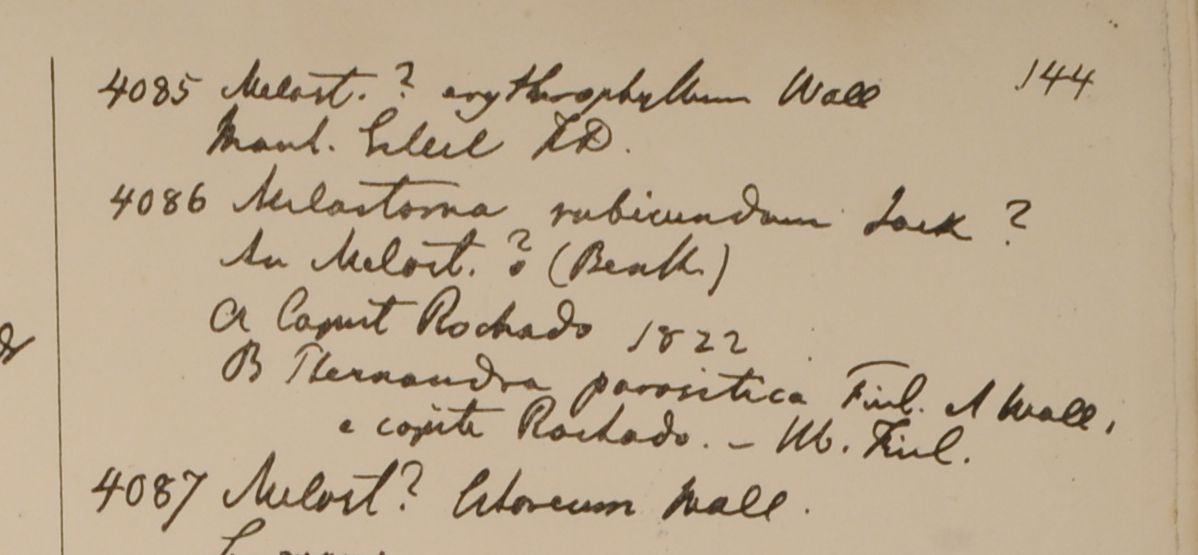 144
4085 Melast. ? erythrophyllum Wall
Mont. Sillet FD.
4086 Melastoma rubicundum Jack ?
An Melast. ? (Benth.)
A Caput Rochado 1822
B Pternandra parasitica Finl. & Wall.
e capite Rochado. – Hb. Finl.
4087 Melast? Wall.